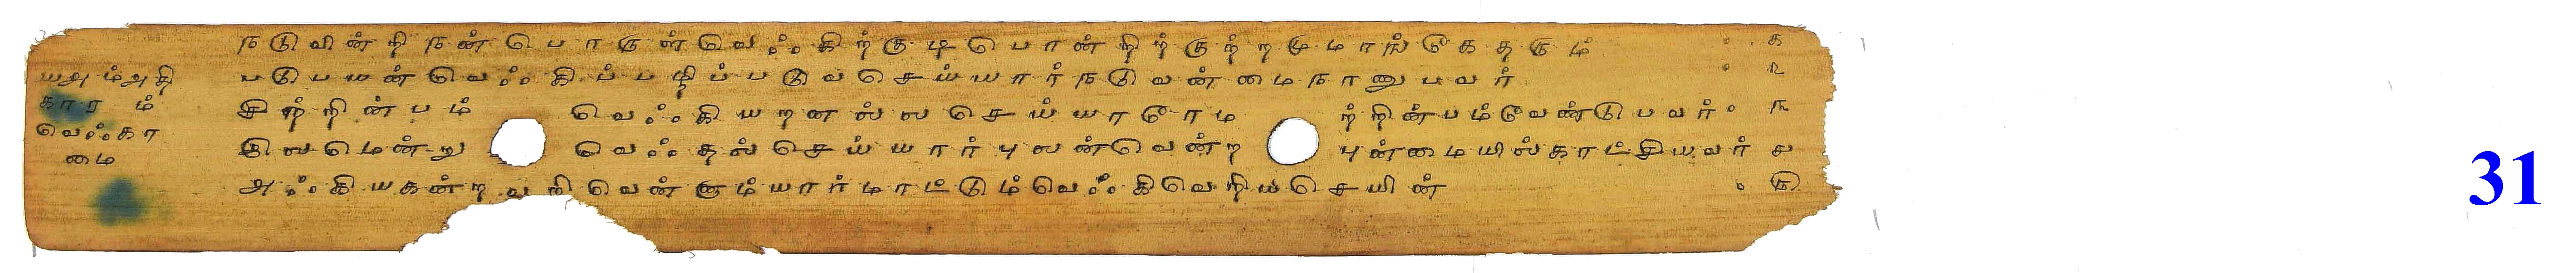 நடுவின்றிநன்பொருள்வெஃகிற்குடிபொன்றிற்குற்றமுமாங்கேதரும் ௧
௰௮ம்அதி படுபயன்வெஃகிப்பழிப்படுவசெய்யார்நடுவண்மைநாணுபவர் ௨
காரம் சிற்றின்பம் வெஃகியறனல்லசெய்யாரேம ற்றின்பம்வேண்டுபவர் ௩
வெஃகா
மை இலமென்று வெஃகுதல்செய்யார்புலன்வென்ற புன்மையில்காட்சியவர் ௪
அஃகியகன்றவறிவென்னாம்யார்மாட்டும்வெஃகிவெறியசெயின் ௫
31